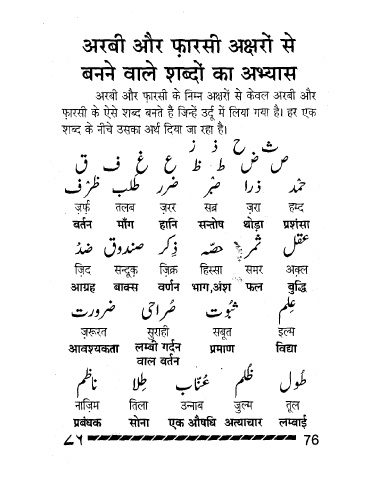 अरबी और फ़ारसी अक्षरों से
बनने वाले शब्दों का अभ्यास
अरबी और फ़ारसी के निम्न अक्षरों से केवल अरबी और
फ़ारसी के ऐसे शब्द बनते हैं जिन्हें उर्दू में लिया गया है। हर एक
शब्द के नीचे उसका अर्थ दिया जा रहा है।
ث ح ذ ژ
ص ض ط ظ ع غ ف ق
حمد ذرا صبر ضرر طلب ظرف
ज़र्फ़ तलब ज़रर सब्र ज़रा हम्द
बर्तन माँग हानि सन्तोष थोड़ा प्रशंसा
عقل ثمر حصہ ذکر صندوق ضد
ज़िद सन्दूक़ ज़िक्र हिस्सा समर अक़्ल
आग्रह बाक्स वर्णन भाग,अंश फल बुद्धि
علم ثبوت صراحی ضرورت
ज़रूरत सुराही सबूत इल्म
आवश्यकता लम्बी गर्दन प्रमाण विद्या
वाल बर्तन
طول ظلم عنّاب طلا ناظم
नाज़िम तिला उन्नाब जुल्म तूल
प्रबंधक सोना एक औषधि अत्याचार लम्बाई
۷۶ 76